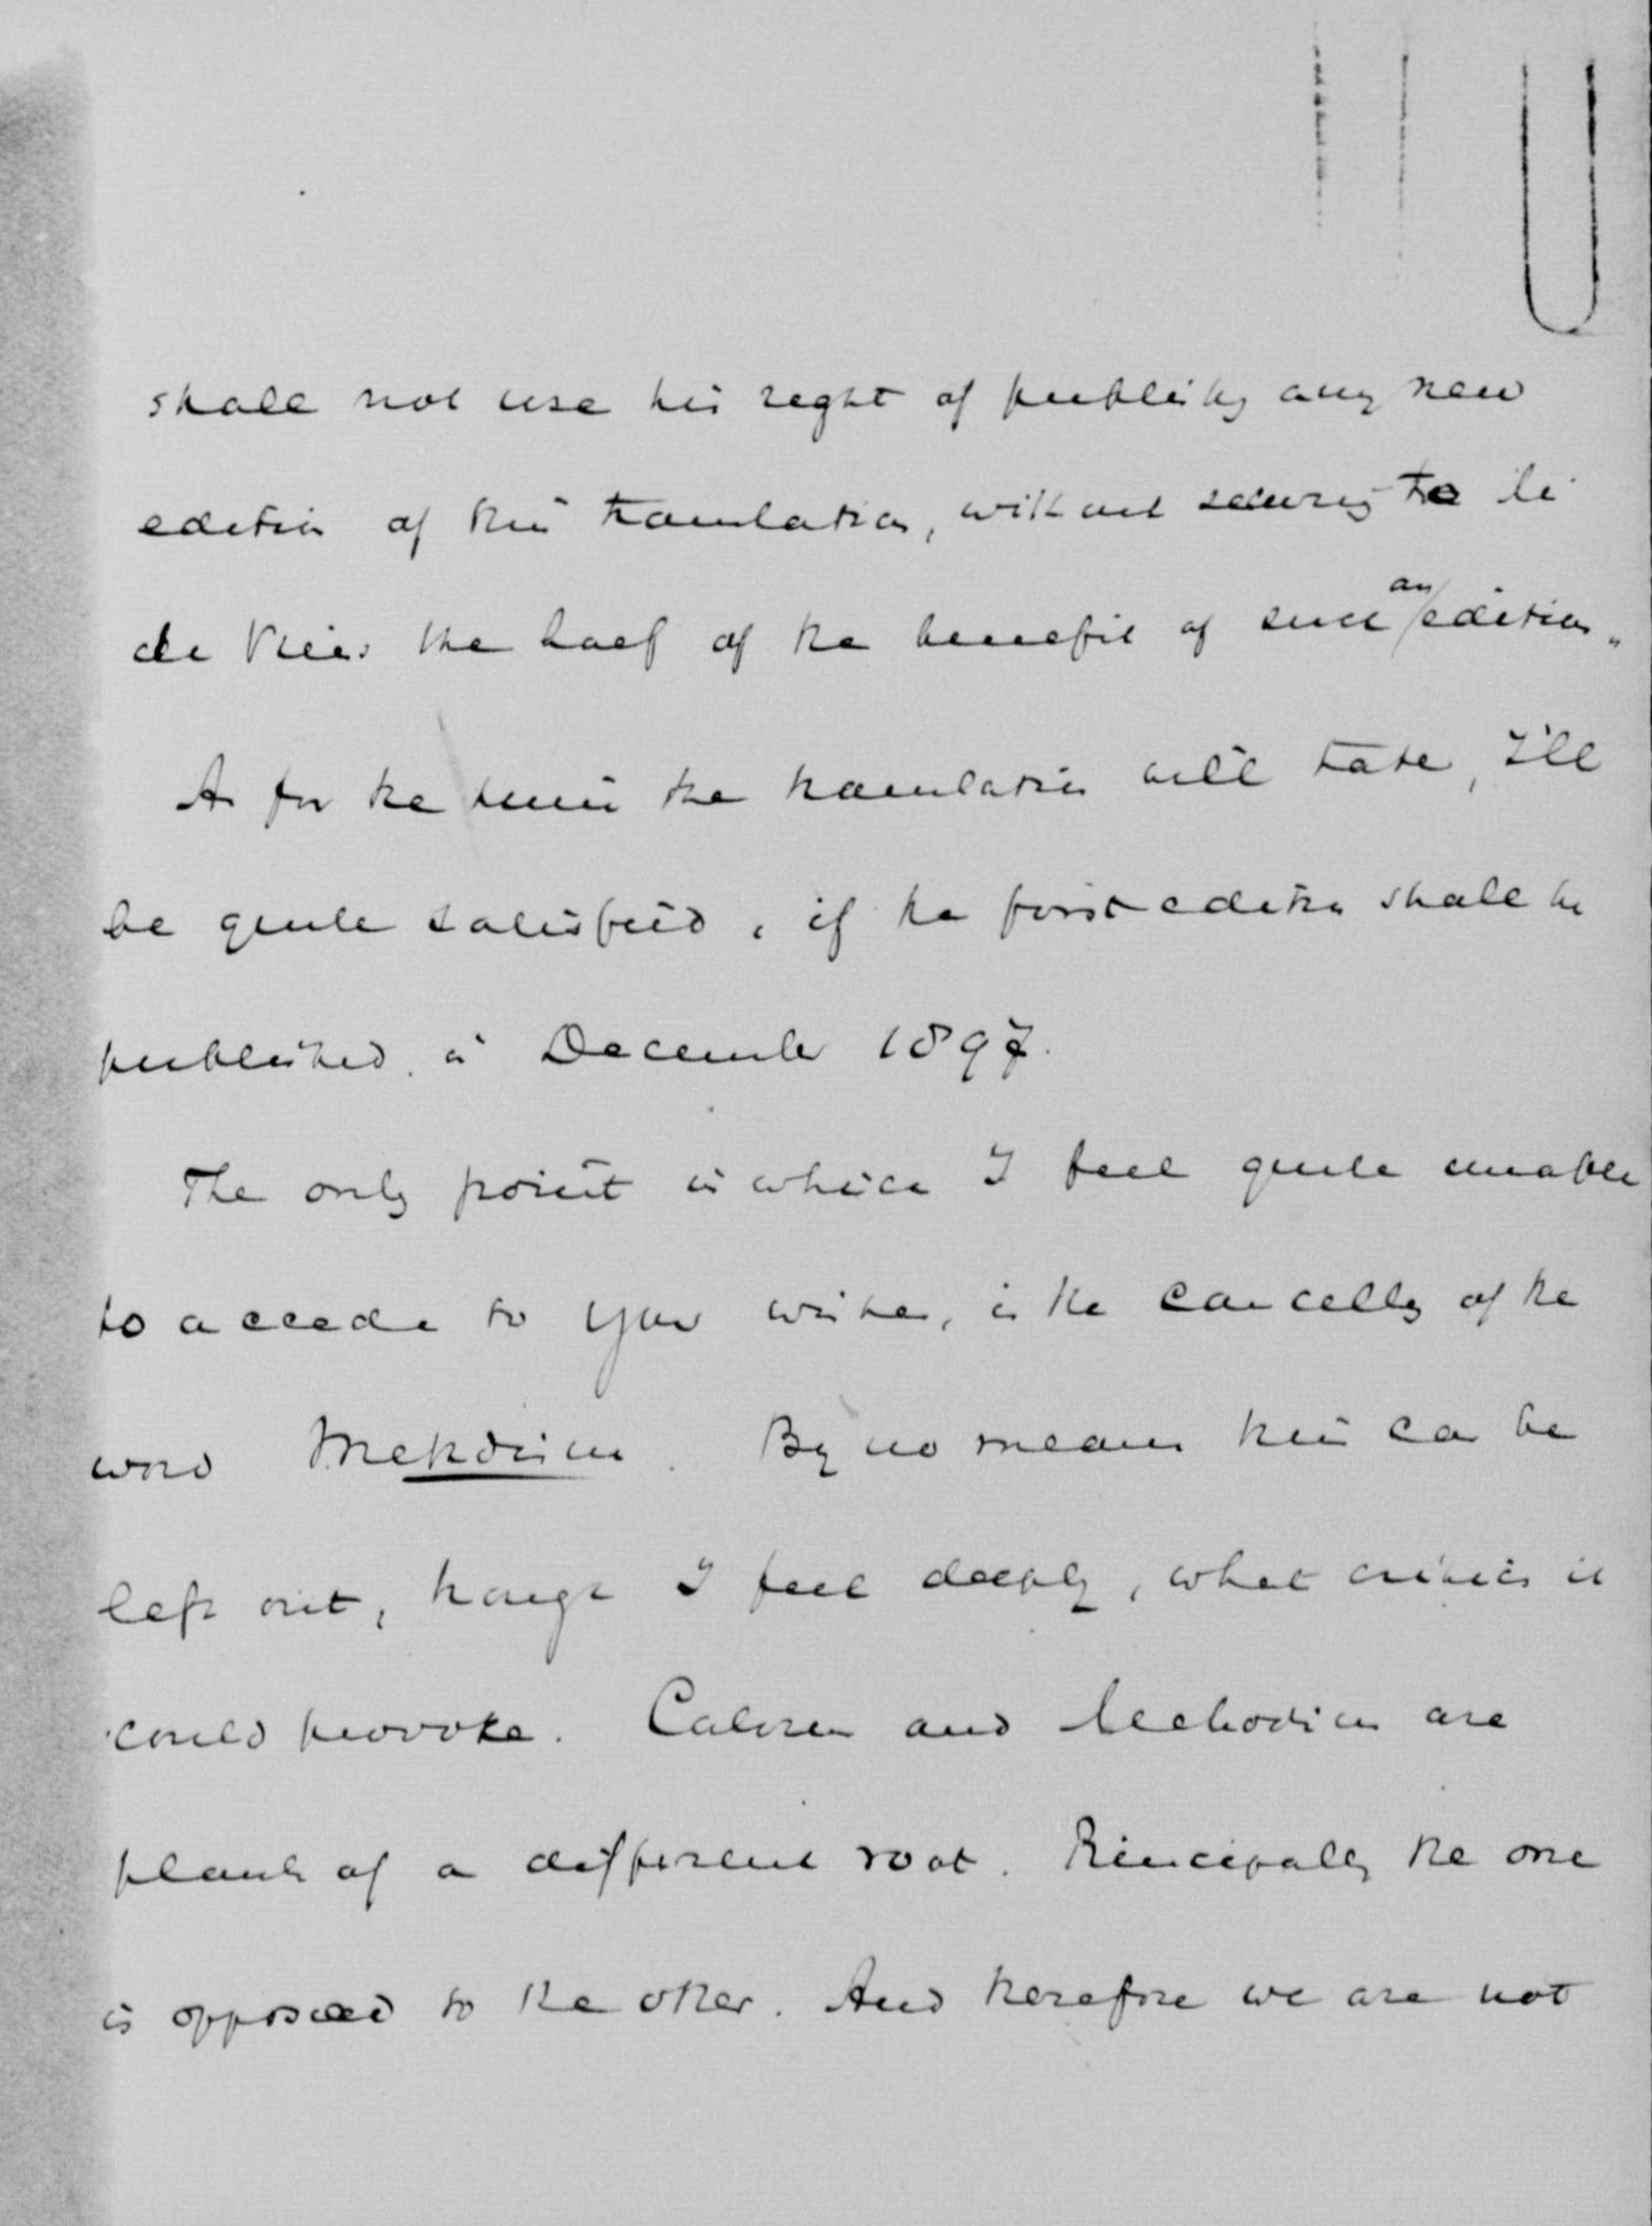 shall not use his right of publishing any new
edition of this translation, without securing to
de Vries the half of the benefit of such an edition.
As for the time the translation will take, I'll
be quite satisfied, if the first edition shall be
published in December 1897.
The only point in which I feel quite unable
to accede to your wishes, is the cancelling of the
word Methodism. By no means this can be
left out, though I feel deeply, what critics it
could provoke. Calvin and Methodism are
plants of a different root. Principally the one
is opposed to the other. And therefore we are not